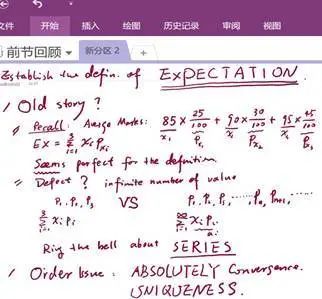 文件 开始 插入 绘图 历史记录 审阅 视图
前节回顾 新分区 2 +
Establish the defin. of EXPECTATION.
Old story?
Recall: Average Marks: 85 × 25/100 + 90 × 30/100 + 95 × 45/100
EX = Σ xᵢ Pxᵢ x₁ P₁ x₂ Px₂ x₃ P₃
Seems perfect for the definition.
Defect? infinite number of value
P₁, P₂, P₃ VS P₁, P₂, P₃, ......, Pₙ, Pₙ₊₁, ......
3 Σ i=1 xᵢ pᵢ ∞ Σ i=1 xᵢ pᵢ
aᵢ
Ring the bell about SERIES
Order Issue: ABSOLUTELY Convergence.
UNIQUENESS.